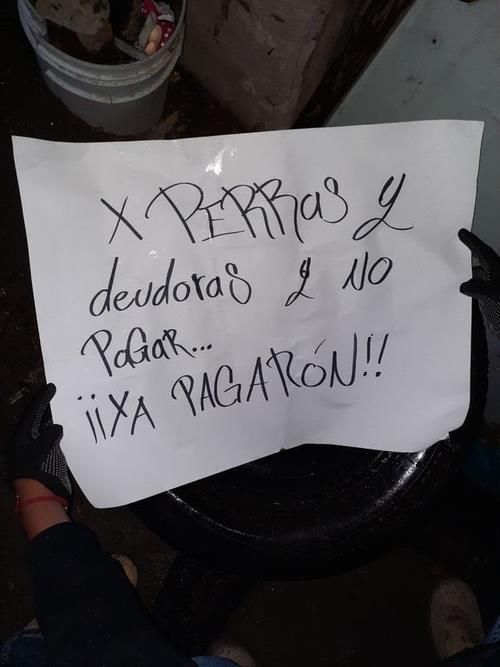 X PERRAS y
deudoras y NO
PAGAR...
¡¡YA PAGARÓN!!